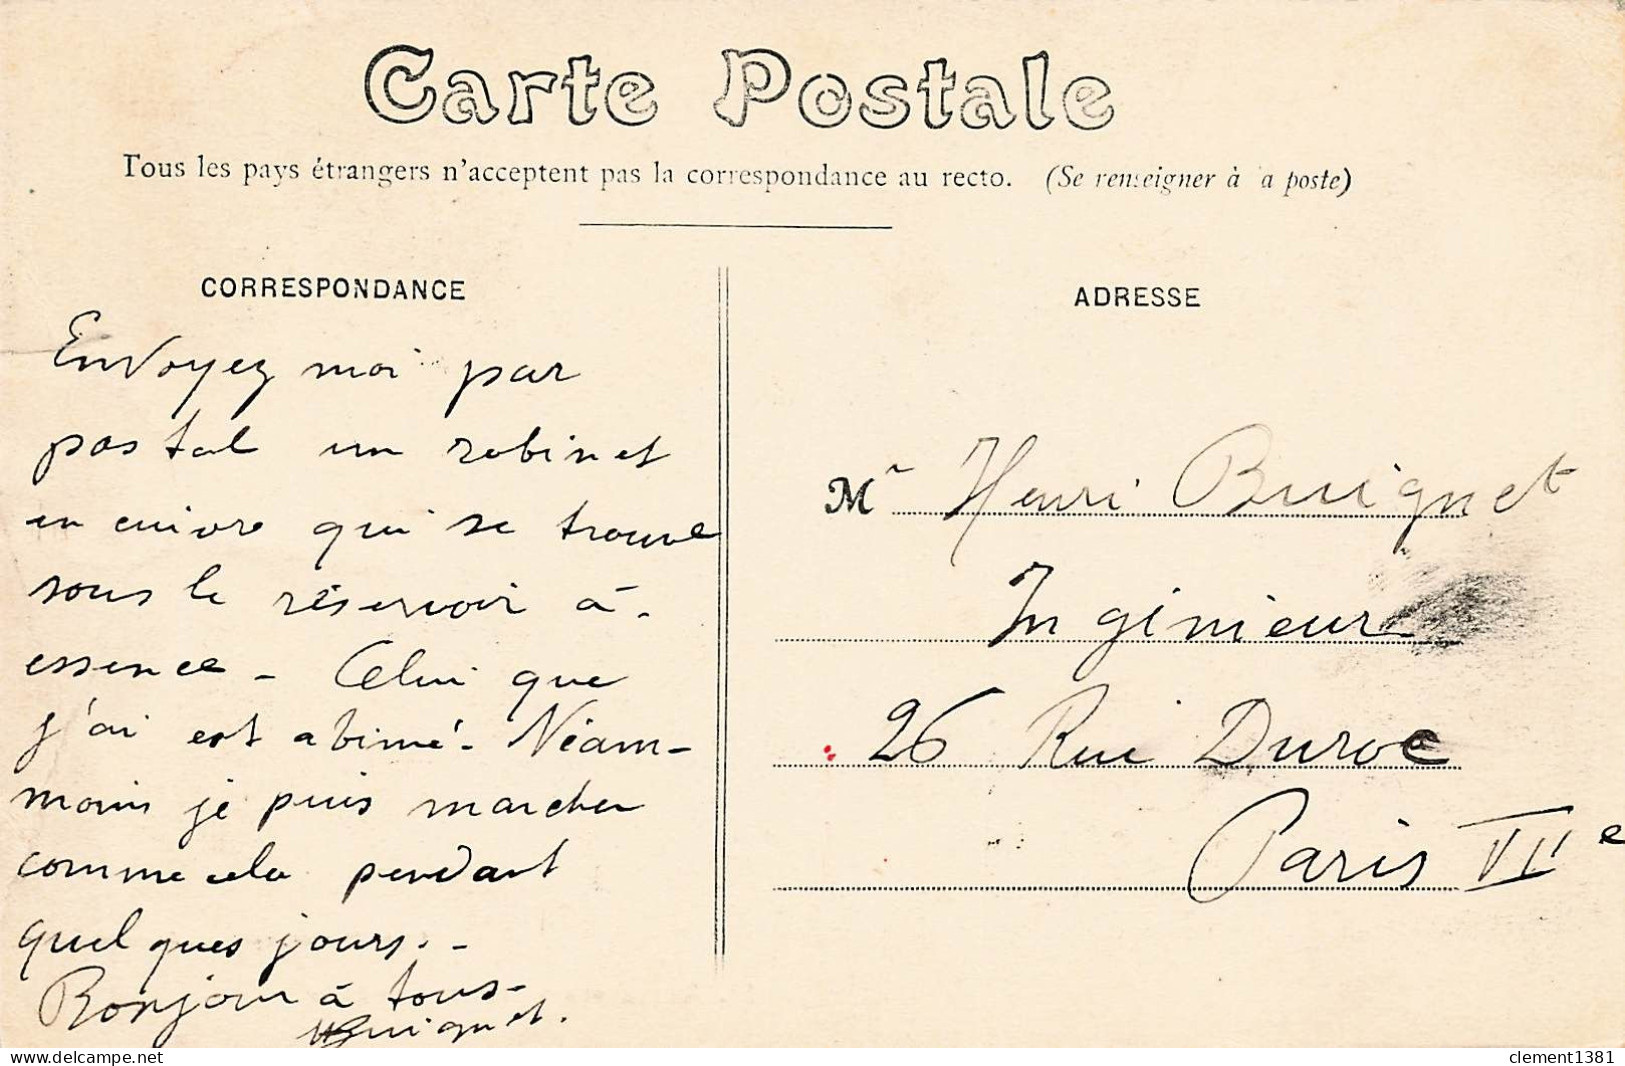 Carte Postale
Tous les pays étrangers n'acceptent pas la correspondance au recto. (Se renseigner à la poste)
CORRESPONDANCE
Envoyez moi par
postal un robinet
en cuivre qui se trouve
sous le réservoir à
essence - Celui que
j'ai est abimé - Néam-
moins je puis marcher
comme cela pendant
quelques jours. -
Bonjour à tous -
Buignet.
ADRESSE
Mr Henri Buignet
Ingénieur
26 Rue Duroc
Paris VIIe
delcampe.net
clement1381